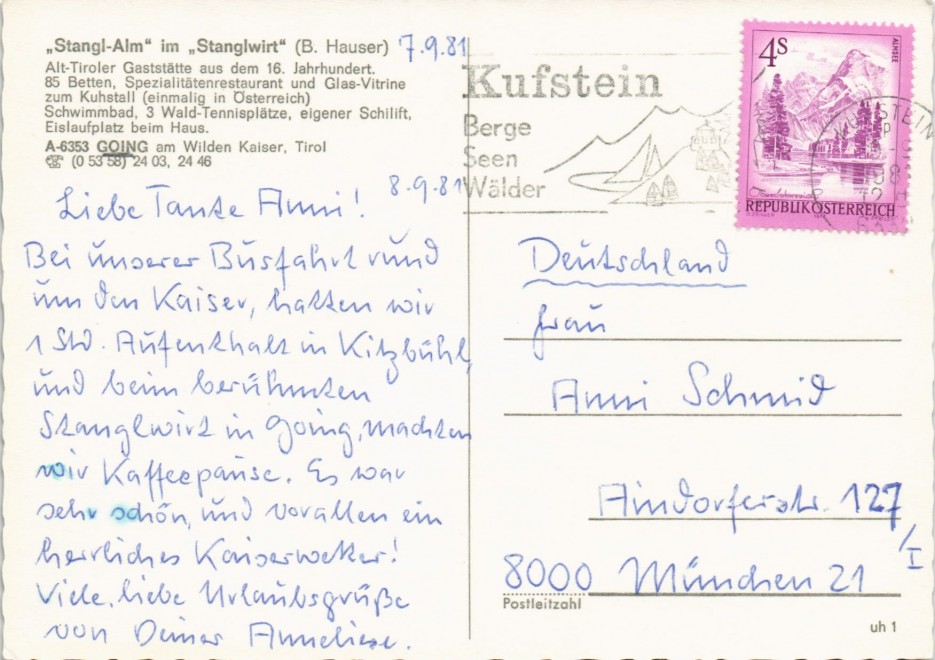 „Stangl-Alm“ im „Stanglwirt“ (B. Hauser)
Alt-Tiroler Gaststätte aus dem 16. Jahrhundert.
85 Betten, Spezialitätenrestaurant und Glas-Vitrine
zum Kuhstall (einmalig in Österreich)
Schwimmbad, 3 Wald-Tennisplätze, eigener Schilift,
Eislaufplatz beim Haus.
A-6353 GOING am Wilden Kaiser, Tirol
☏ (0 53 58) 24 03, 24 46
7.9.81
8.9.81
Liebe Tante Anni!
Bei unserer Busfahrt rund
um den Kaiser, hatten wir
1 Std. Aufenthalt in Kitzbühl,
und beim berühmten
Stanglwirt in Going, machten
wir Kaffeepause. Es war
sehr schön, und vorallen ein
herrliches Kaiserwetter!
Viele, liebe Urlaubsgrüße
von Deiner Anneliese.
Kufstein
Berge
Seen
Wälder
4S
ALMSEE
REPUBLIK ÖSTERREICH
KUFSTEIN
Deutschland
Frau
Anni Schmid
Aindorferstr. 127
/I
8000 München 21
Postleitzahl
uh 1